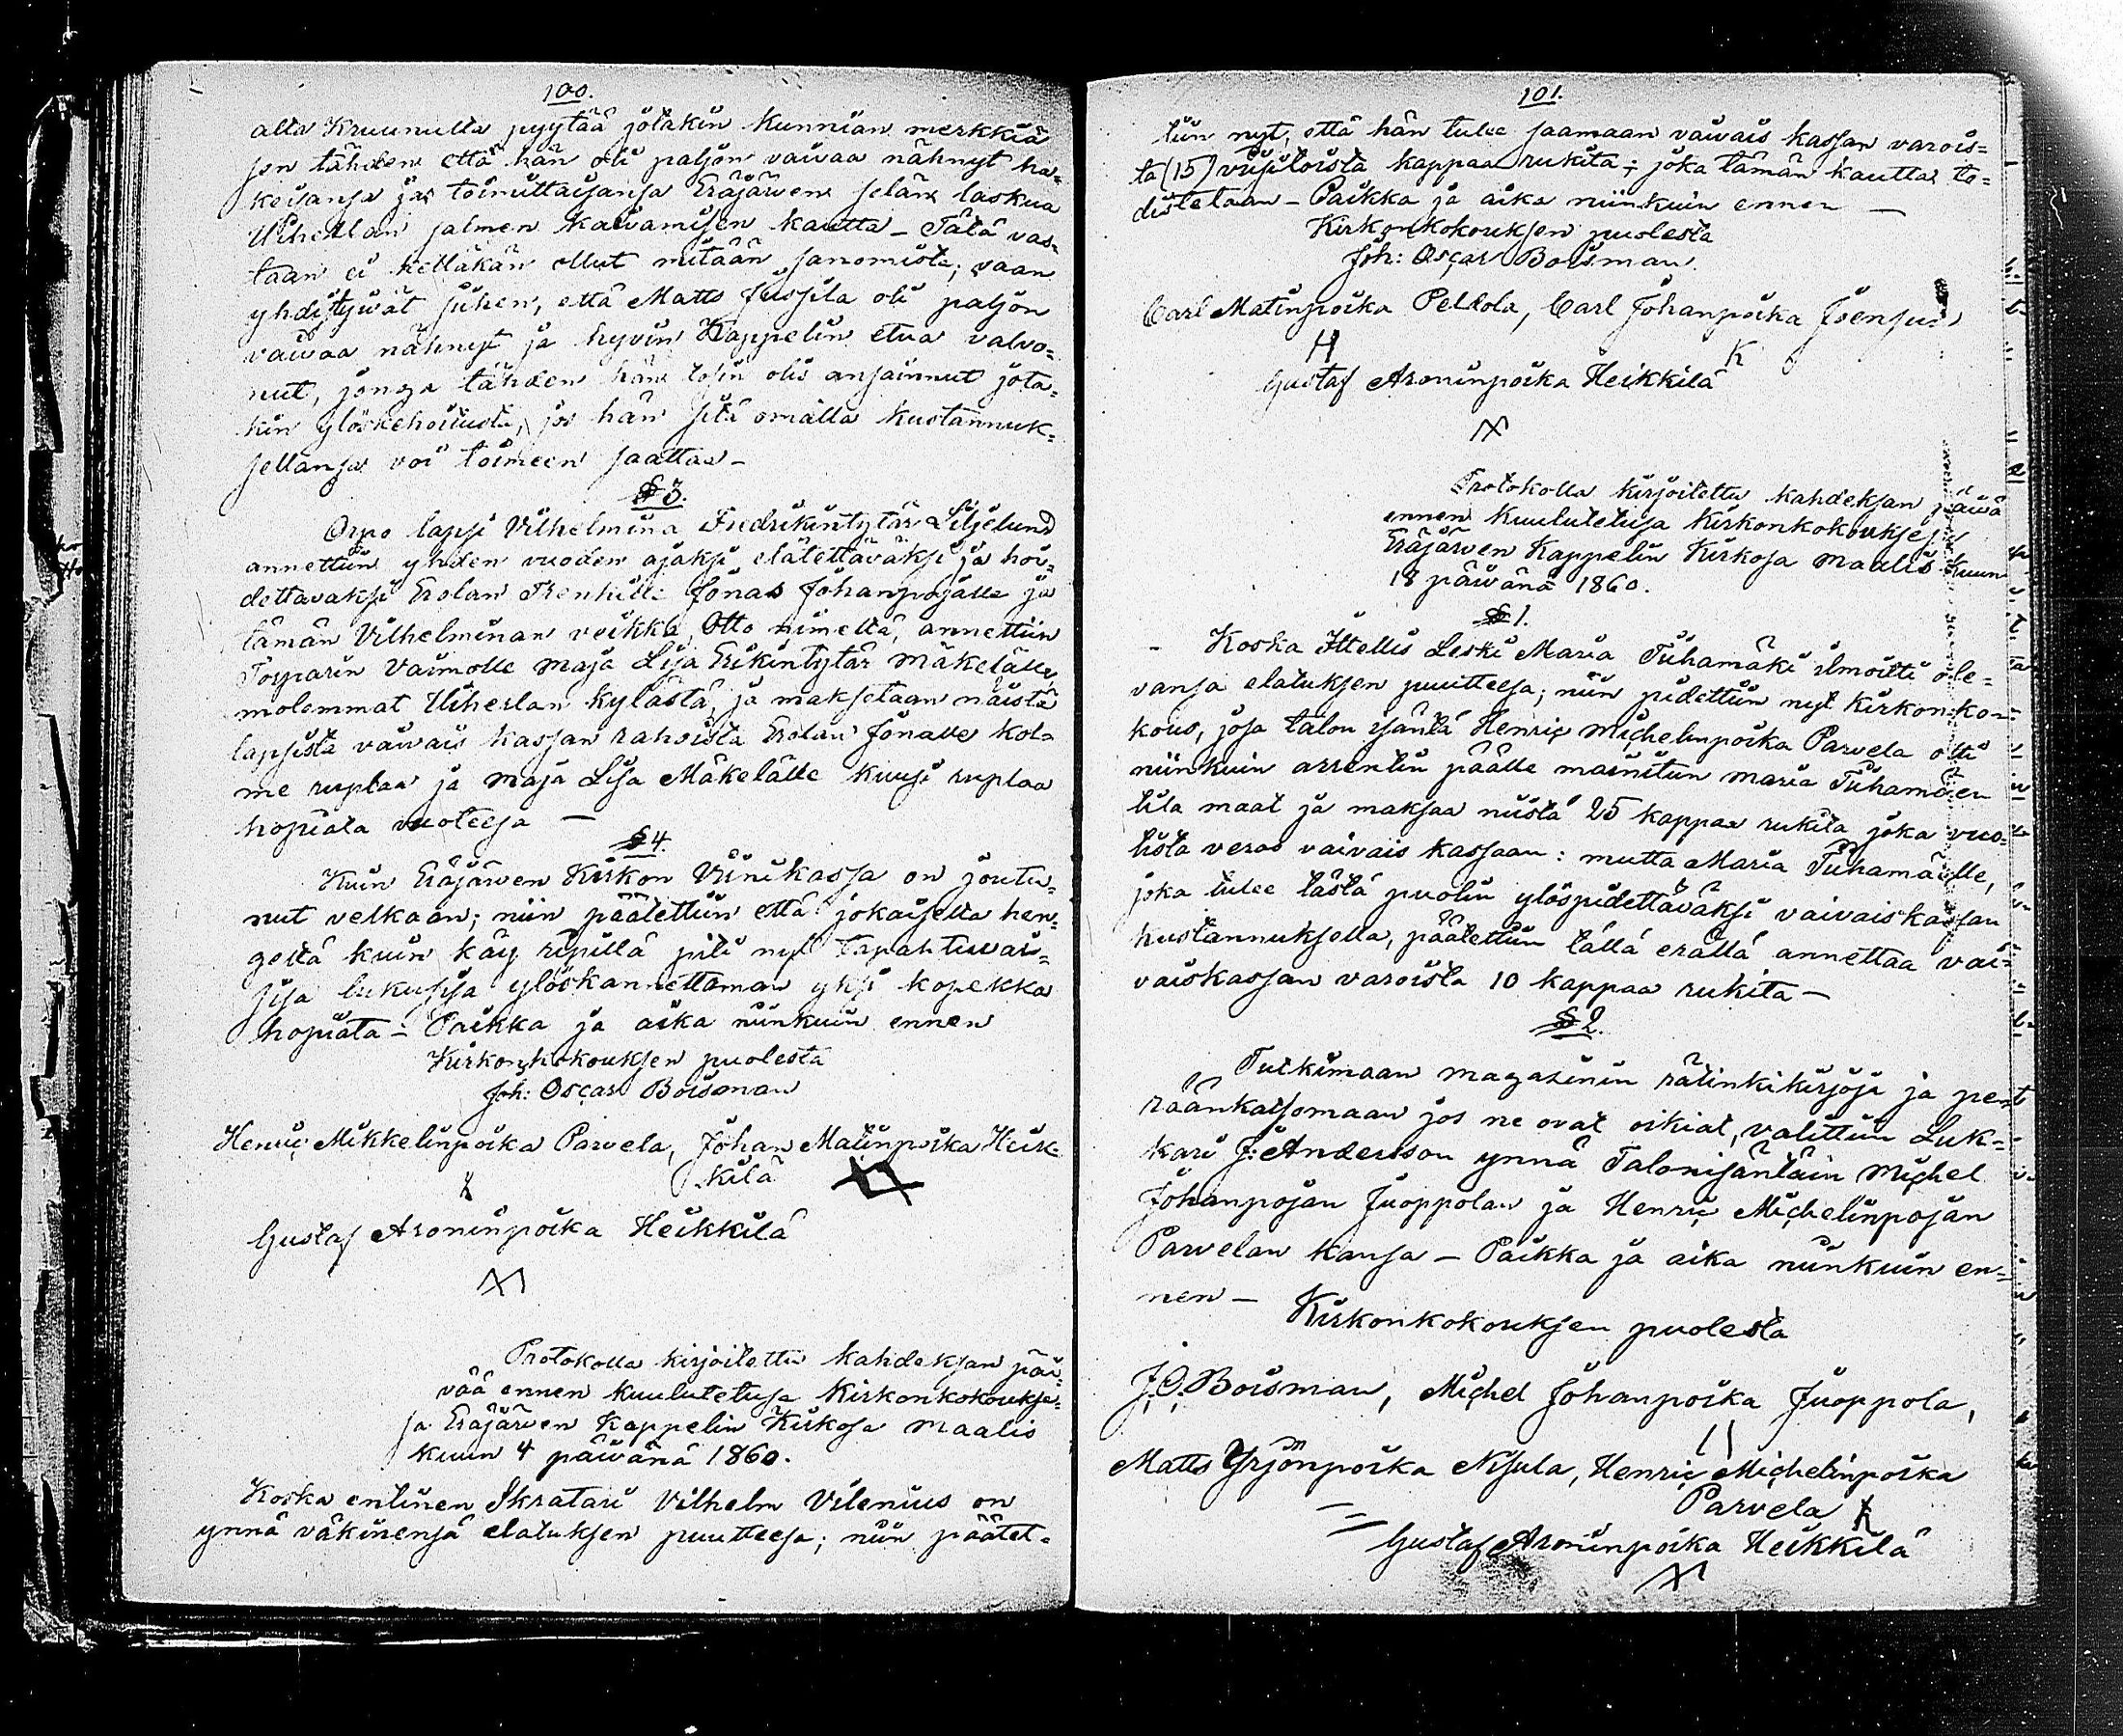 100.
alta Kruunulta pyytää jotakin kunnian merkkiä
sen tähden että hän oli paljon vaivaa nähnyt ha=
keisansa ja toimittaisansa Eräjärven selän laskua
Uiherlan salmen kaivamisen kautta – Tätä vas=
taan ei kelläkän ollut mitään sanomista; vaan
yhdistyivät siihen, että Matts Jussila oli paljon
vaivaa nähnyt ja hyvin Kappelin etua valvo=
nut, jonga tähden hän tosin olis ansainnut jota=
kin ylöskehoitusta, jos hän sitä omalla kustannuk=
sellansa voi toimeen saattaa –
§ 3.
Orpo lapsi Vilhelmina Fredrikintytär Liljelund
annettiin yhden vuoden ajaksi elätettäväksi ja hoi=
dettavaksi Erolan Trenkille Jonas Johanpojalle ja
tämän Vilhelminan veikka, Otto nimeltä, annettiin
Torparin Vaimolle Maja Lisa Erikintytär Mäkelälle,
molemmat Uiherlan kylästä, ja maksetaan näistä
lapsista vaivais kassan rahoista Erolan Jonalle kol=
me ruplaa ja Maja Lisa Mäkelälle kuusi ruplaa
hopiata vuoteesa —
§ 4.
Kuin Eräjärven Kirkon Viinikassa on joutu=
nut velkaan; niin päätettiin että jokaiselta hen=
geltä kuin käy ripillä piti nyt tapahtuvai=
sisa lukusisa ylöskannettaman yksi kopekka
hopiata – Paikka ja aika niinkuin ennen
Kirkonkokouksen puolesta
Joh: Oscar Boisman
Henric Mikkelinpoika Parvela, Johan Matinpoika Heik=
kilä
Gustaf Aroninpoika Heikkilä
Protokolla kirjoitettu kahdeksan päi=
vää ennen kuulutetusa Kirkonkokoukse=
sa Eräjärven Kappelin Kirkosa Maalis
kuun 4 päivänä 1860.
Koska entinen Skratari Vilhelm Vilenius on
ynnä väkinensä elatuksen puutteesa; niin päätet=
101.
tiin nyt, että hän tulee saamaan vaivais kassan varois=
ta (15) viisitoista kappaa rukita; joka tämän kautta to=
distetaan – Paikka ja aika niinkuin ennen —
Kirkonkokouksen puolesta
Joh: Oscar Boisman.
Carl Matinpoika Peltola, Carl Johanpoika Isensuu
H K
Gustaf Aroninpoika Heikkilä
Protokolla kirjoitettu kahdeksan päivä
ennen kuulutetusa Kirkonkokoukses
Eräjärven Kappelin Kirkosa Maalis kuun
18 päivänä 1860.
§ 1.
Koska Ittellis Leski Maria Tiihamäki ilmoitti ole=
vansa elatuksen puutteesa; niin pidettiin nyt Kirkonko=
kous, josa talon isäntä Henric Michelinpoika Parvela otti
niinkuin arrentin päälle mainitun Maria Tiihamäen
tila maat ja maksaa niistä 25 kappaa rukita joka vuo=
tista veroa vaivais kassaan: mutta Maria Tiihamäelle,
joka tulee tästä puolin ylöspidettäväksi vaivaiskassan
kustannuksella, päätettiin tällä erällä annettaa vai=
vaiskassan varoista 10 kappaa rukita –
§ 2.
Tutkimaan magasinin rätinkikirjoja ja pe=
räänkatsomaan jos ne ovat oikiat, valittiin Luk=
kari J: Andersson ynnä Talonisäntäin Michel
Johanpojan Juoppolan ja Henric Michelinpojan
Parvelan kansa – Paikka ja aika niinkuin en=
nen –
Kirkonkokouksen puolesta
J. O. Boisman, Michel Johanpoika Juoppola,
Matts Yrjönpoika Nisula, Henric Michelinpoika
Parvela
Gustaf Aroninpoika Heikkilä